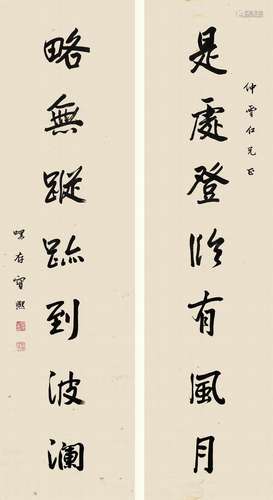 仲雲仁兄正
是處登臨有風月
略無蹤跡到波瀾
寶熙